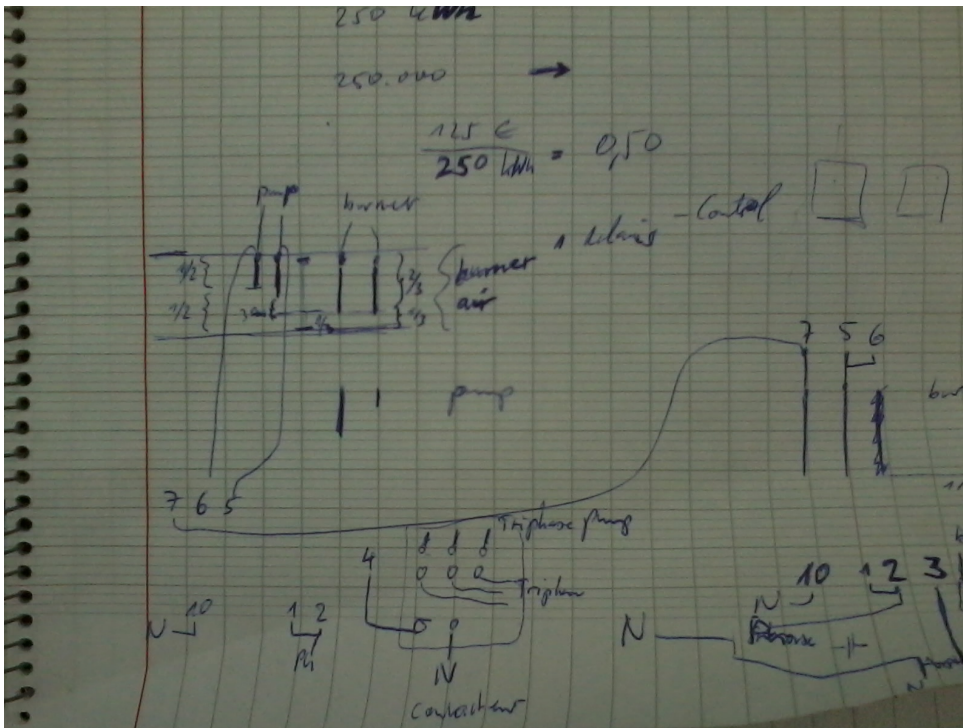 250 kWh
250.000 →
125 €
250 kWh = 0,50
pump
burner
1/2
1/2
2/3
1/3
1/3
burner
air
1 relais - Control
pump
7 5 6
7 6 5
Triphase pump
4
Triphase
N 10
1 2
Ph
N
contacteur
N
N 10 1 2 3
N